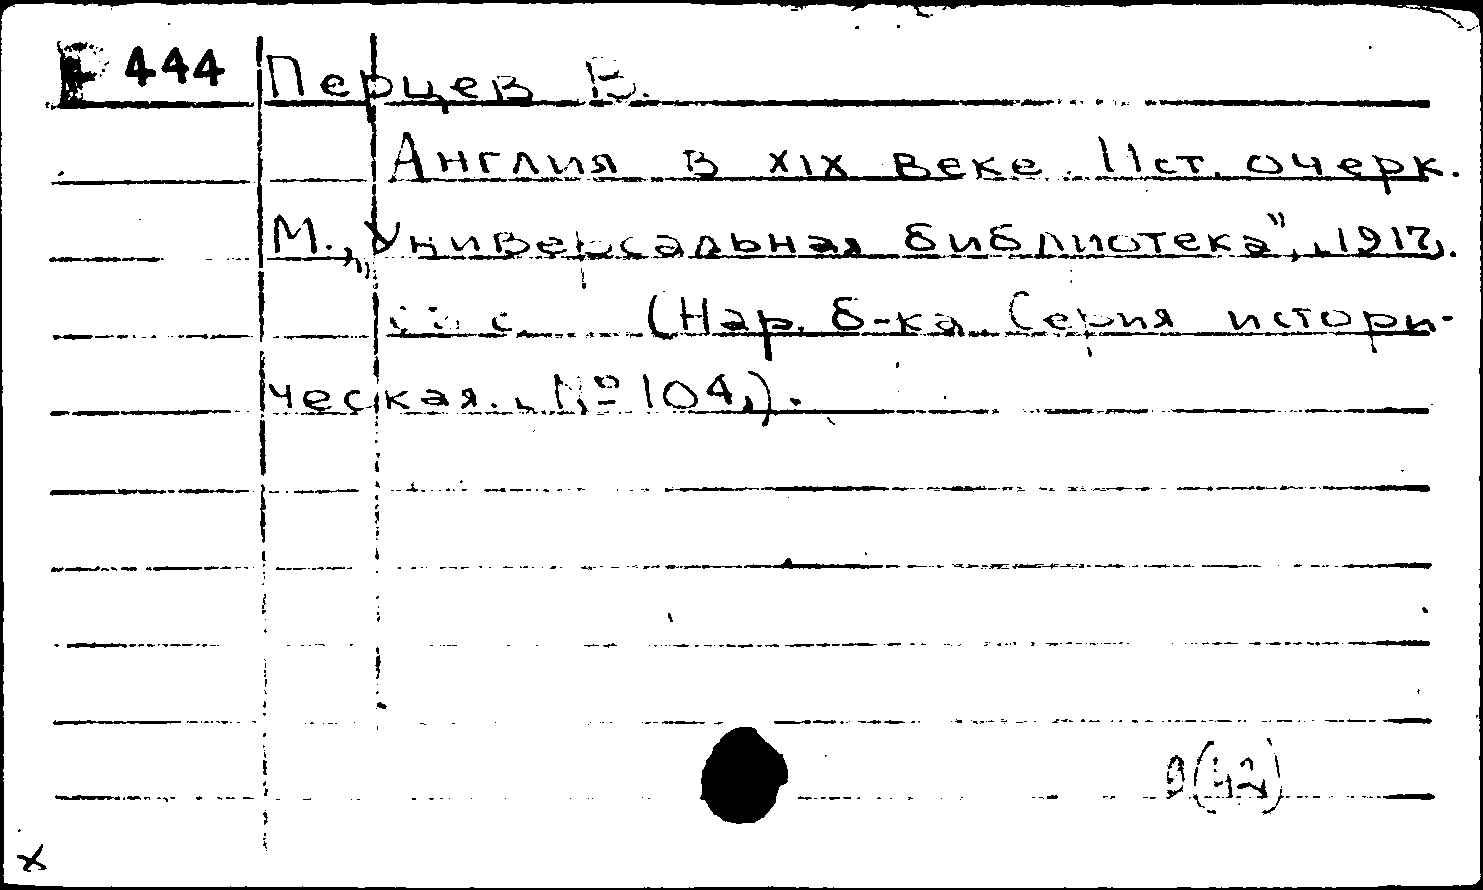 P 444 Перцев В.
Англия в XIX веке. Ист. очерк.
М., „Универсальная библиотека", 1917.
с. (Нар. б-ка. Серия истори-
ческая. № 104.).
9(42)
x